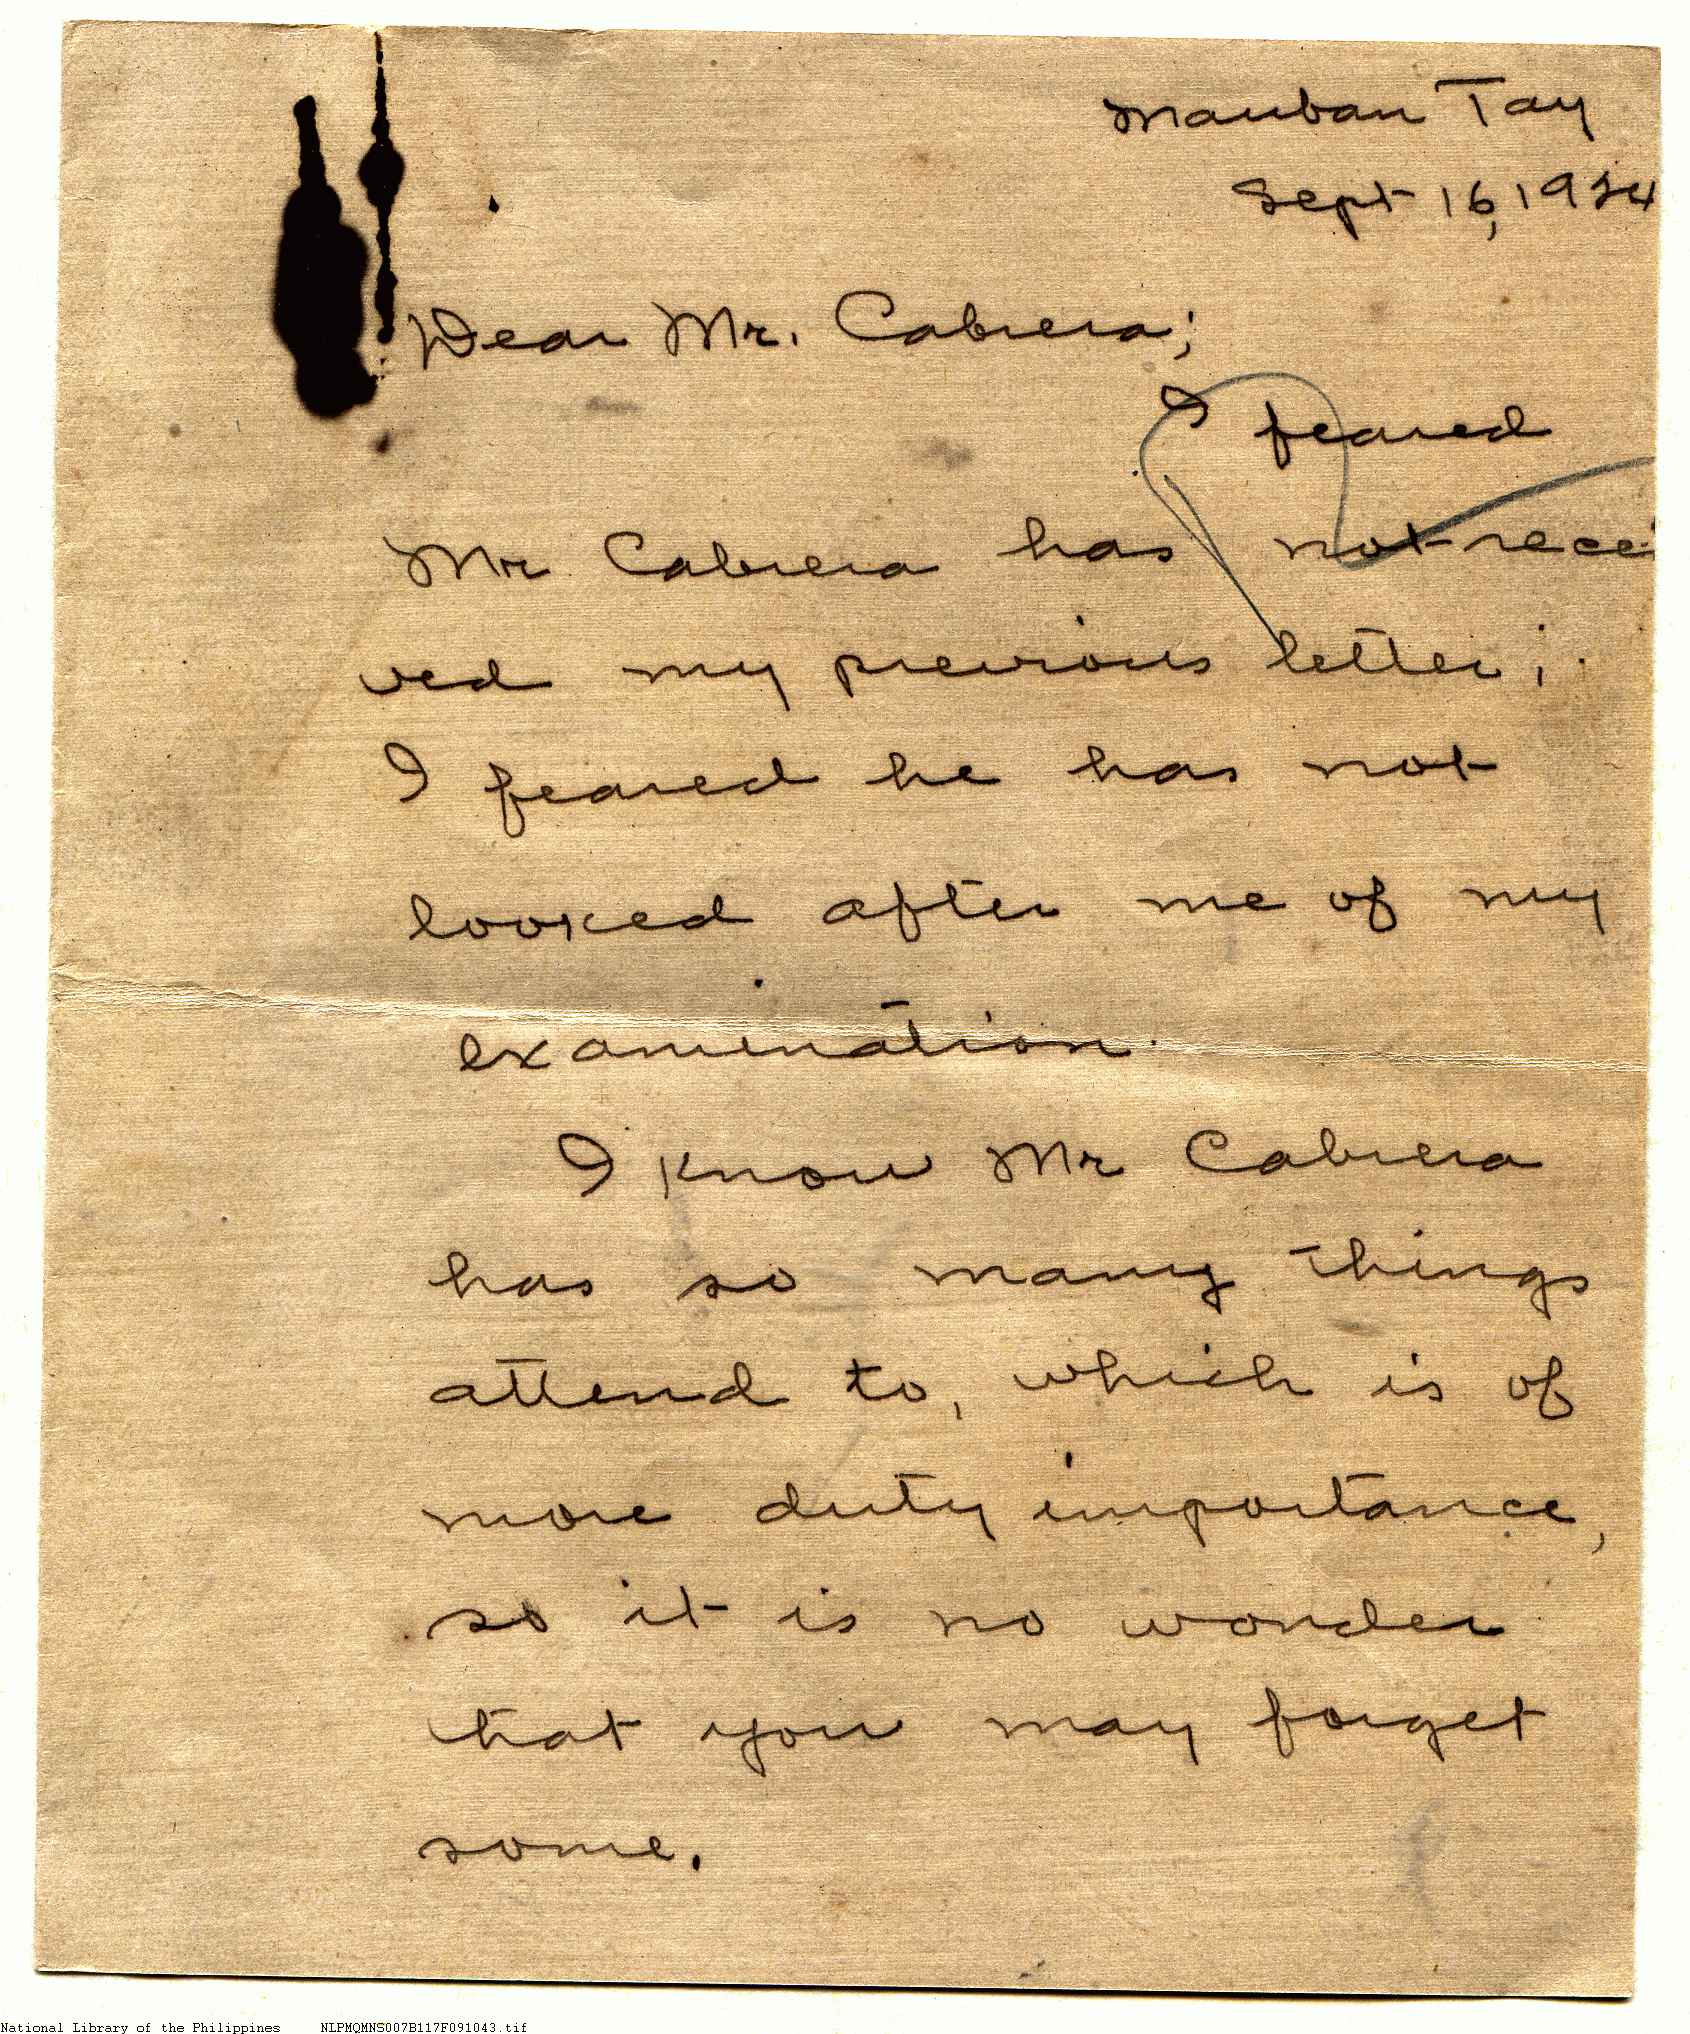 Mauban Tay
Sept 16, 1924
Dear Mr. Cabrera;
I feared
Mr Cabrera has not recei
ved my previous letter;
I feared he has not
looked after me of my
examination.
I know Mr Cabrera
has so many things
attend to, which is of
more duty importance,
so it is no wonder
that you may forget
some.
National Library of the Philippines NLPMQMNS007B117F091043.tif